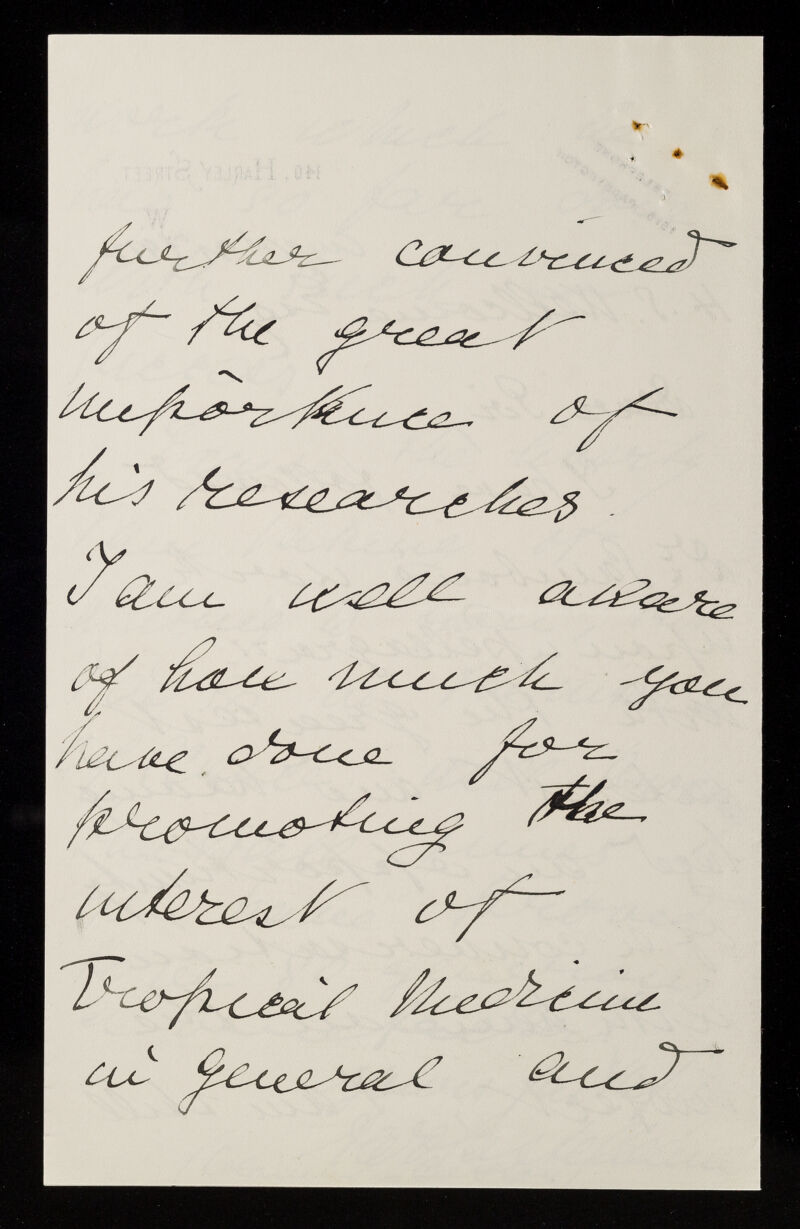 further convinced
of the great
importance of
his researches.
I am well aware
of how much you
have done for
promoting the
interest of
Tropical Medicine
in general and
140, HARLEY STREET,
W.